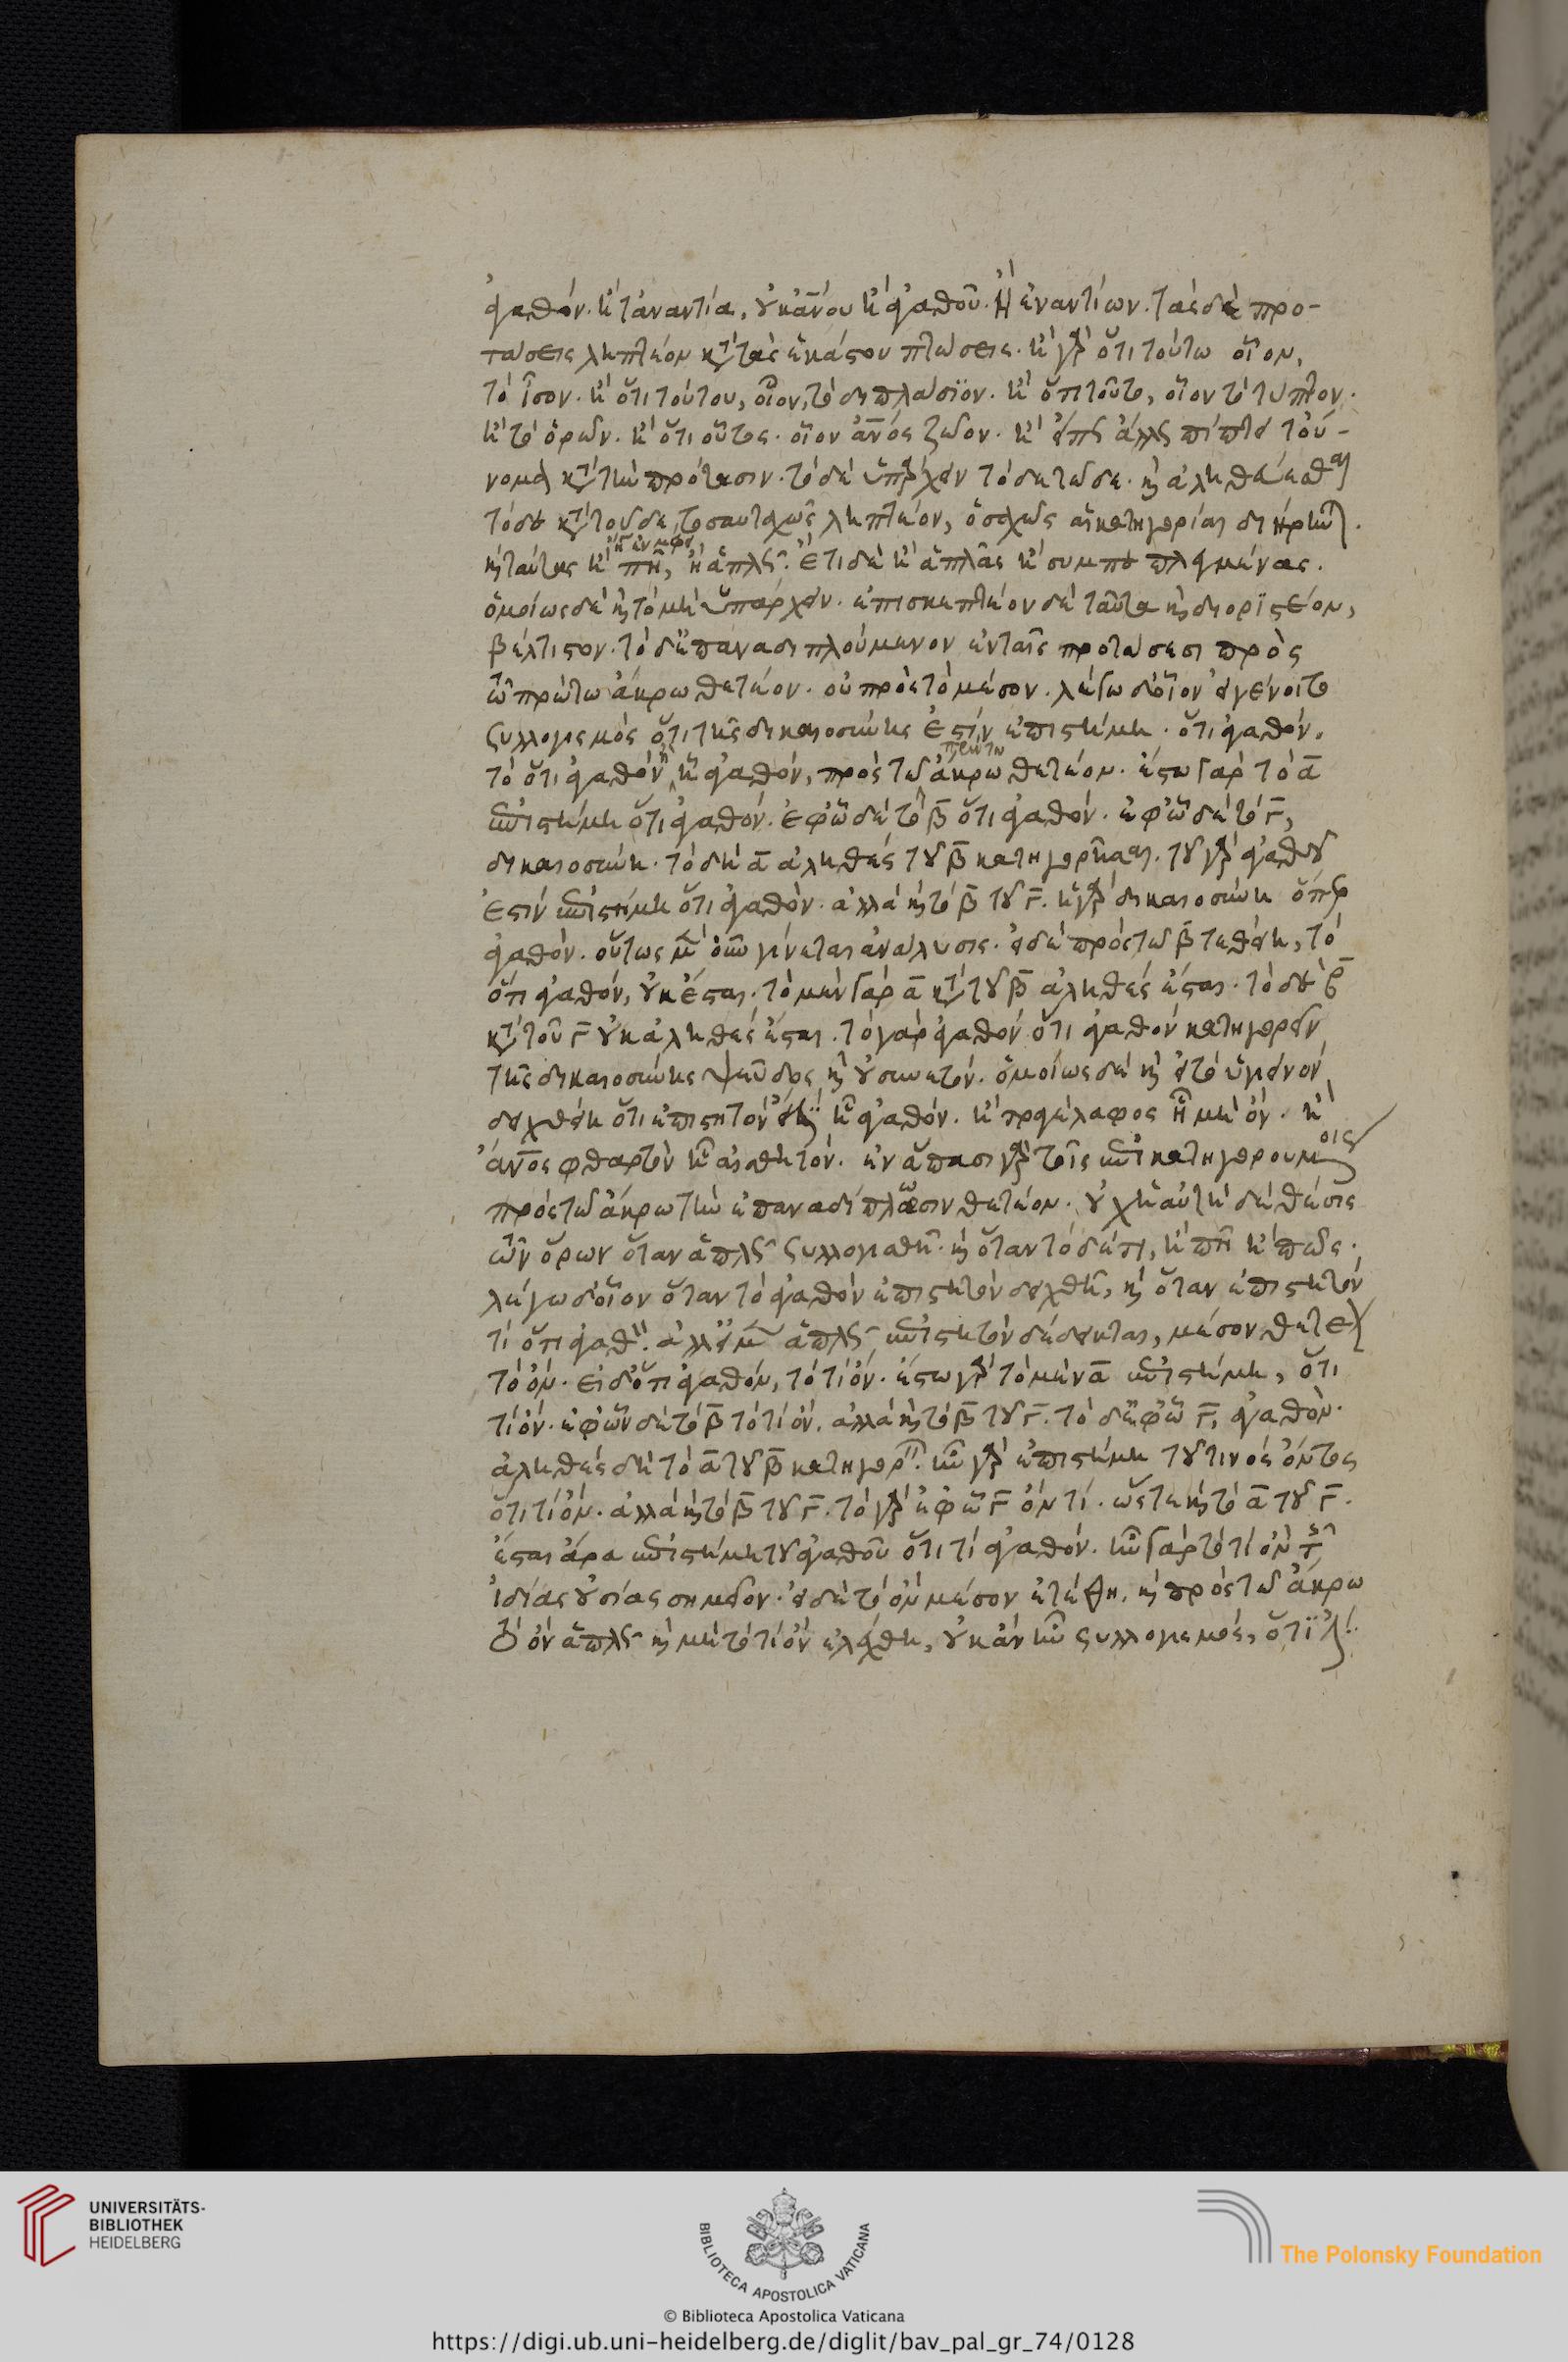 ἀγαθόν. ἢ τἀναντία, οὐκ ἀνου ἢ ἀγαθοῦ. ἢ ἐναντίων. τὰς δὲ προ-
τάσεις ληπτέον κατὰ τὰς ἑκάστου πτώσεις. ἢ γὰρ ὅτι τούτω οἷον,
τὸ ἶσον. ἢ ὅτι τούτου, οἷον, τὸ διπλάσϊον. ἢ ὅτι τοῦτο, οἷον τὸ τύπτον.
ἢ τὸ ὁρῶν. ἢ ὅτι οὗτος. οἷον ἄνος ζῶον. ἢ εἴπως ἄλλως πίπτει τοὔ-
νομα κατὰ τὴν πρότασιν. τὸ δὲ ὑπάρχειν τόδε τῶδε. καὶ ἀληθεύεσθαι
τόδε κατὰ τοῦδε τοσαυταχῶς ληπτέον, ὁσαχῶς αἱ κατηγορίαι διήρηνται.
καὶ ταύτας ἢ πῆ, ἢ ἁπλῶς. ἔτι δὲ ἢ ἁπλᾶς ἢ συμπεπλεγμένας.
ὁμοίως δὲ καὶ τὸ μὴ ὑπάρχειν. ἐπισκεπτέον δὲ ταῦτα καὶ διοριστέον,
βέλτιστον. τὸ δ' ἐπαναδιπλούμενον ἐν ταῖς προτάσεσι πρὸς
τῶ πρώτω ἄκρω θετέον. οὐ πρὸς τὸ μέσον. λέγω δ' οἷον εἰ γένοιτο
συλλογισμὸς ὅτι τῆς δικαιοσύνης ἐστὶν ἐπιστήμη. ὅτι ἀγαθόν.
τὸ ὅτι ἀγαθὸν ἢ ᾗ ἀγαθόν, πρὸς τῶ πρώτω ἄκρω θετέον. ἔστω γὰρ τὸ α
ἐπιστήμη ὅτι ἀγαθόν. ἐφ' ὧ δὲ τὸ β ὅτι ἀγαθόν. ἐφ' ὧ δὲ τὸ γ,
δικαιοσύνη. τὸ δὴ α ἀληθὲς τοῦ β κατηγορῆσαι. τοῦ γὰρ ἀγαθοῦ
ἐστὶν ἐπιστήμη ὅτι ἀγαθόν. ἀλλὰ καὶ τὸ β τοῦ γ. ἡ γὰρ δικαιοσύνη ὅπερ
ἀγαθόν. οὕτως μὲν οὖν γίνεται ἀνάλυσις. εἰ δὲ πρὸς τῶ β τεθείη, τὸ
ὅτι ἀγαθόν, οὐκ ἔσται. τὸ μὲν γὰρ α κατὰ τοῦ β ἀληθὲς ἔσται. τὸ δὲ β
κατὰ τοῦ γ οὐκ ἀληθὲς ἔσται. τὸ γὰρ ἀγαθὸν ὅτι ἀγαθὸν κατηγορεῖν
τῆς δικαιοσύνης ψεῦδος καὶ οὐ συνετόν. ὁμοίως δὲ καὶ εἰ τὸ ὑγιεινὸν
δειχθείη ὅτι ἐπιστητὸν ἐστὶν ἧ ἀγαθόν. ἢ τραγέλαφος ἧ μὴ ὄν. ἢ
ἄνος φθαρτὸν ἧ αἰσθητόν. ἐν ἅπασι γὰρ τοῖς ἐπικατηγορουμένοις
πρὸς τῶ ἄκρω τὴν ἐπαναδίπλωσιν θετέον. οὐχ ἡ αὐτὴ δὲ θέσις
τῶν ὅρων ὅταν ἁπλῶς συλλογισθῆ. καὶ ὅταν τόδε τι, ἢ πῆ ἢ πῶς.
λέγω δ' οἷον ὅταν τὸ ἀγαθὸν ἐπιστητὸν δειχθῆ, καὶ ὅταν ἐπιστητόν
τί ὅτι ἀγαθόν. ἀλλ' εἰ μὲν ἁπλῶς ἐπιστητὸν δέδεικται, μέσον θετέον
τὸ ὄν. εἰ δ' ὅτι ἀγαθόν, τὸ τὶ ὄν. ἔστω γὰρ τὸ μὲν α ἐπιστήμη, ὅτι
τὶ ὄν. ἐφ' ὧν δὲ τὸ β τὸ τὶ ὄν. ἀλλὰ καὶ τὸ β τοῦ γ. τὸ δ' ἐφ' ὧ γ, ἀγαθόν.
ἀληθὲς δὴ τὸ α τοῦ β κατηγορεῖν. ἦν γὰρ ἐπιστήμη τοῦ τινὸς ὄντος
ὅτι τὶ ὄν. ἀλλὰ καὶ τὸ β τοῦ γ. τὸ γὰρ ἐφ' ὧ γ ὄν τί. ὥστε καὶ τὸ α τοῦ γ.
ἔσται ἄρα ἐπιστήμη τοῦ ἀγαθοῦ ὅτι τὶ ἀγαθόν. ἦν γὰρ τὸ τὶ ὂν τῆς
ἰδίας οὐσίας σημεῖον. εἰ δὲ τὸ ὂν μέσον ἐτέθη. καὶ πρὸς τῶ ἄκρω
τὸ ὂν ἁπλῶς καὶ μὴ τὸ τὶ ὂν ἐλέχθη, οὐκ ἂν ἦν συλλογισμός, ὅτϊ
UNIVERSITÄTS-
BIBLIOTHEK
HEIDELBERG
BIBLIOTECA APOSTOLICA VATICANA
The Polonsky Foundation
© Biblioteca Apostolica Vaticana
https://digi.ub.uni-heidelberg.de/diglit/bav_pal_gr_74/0128